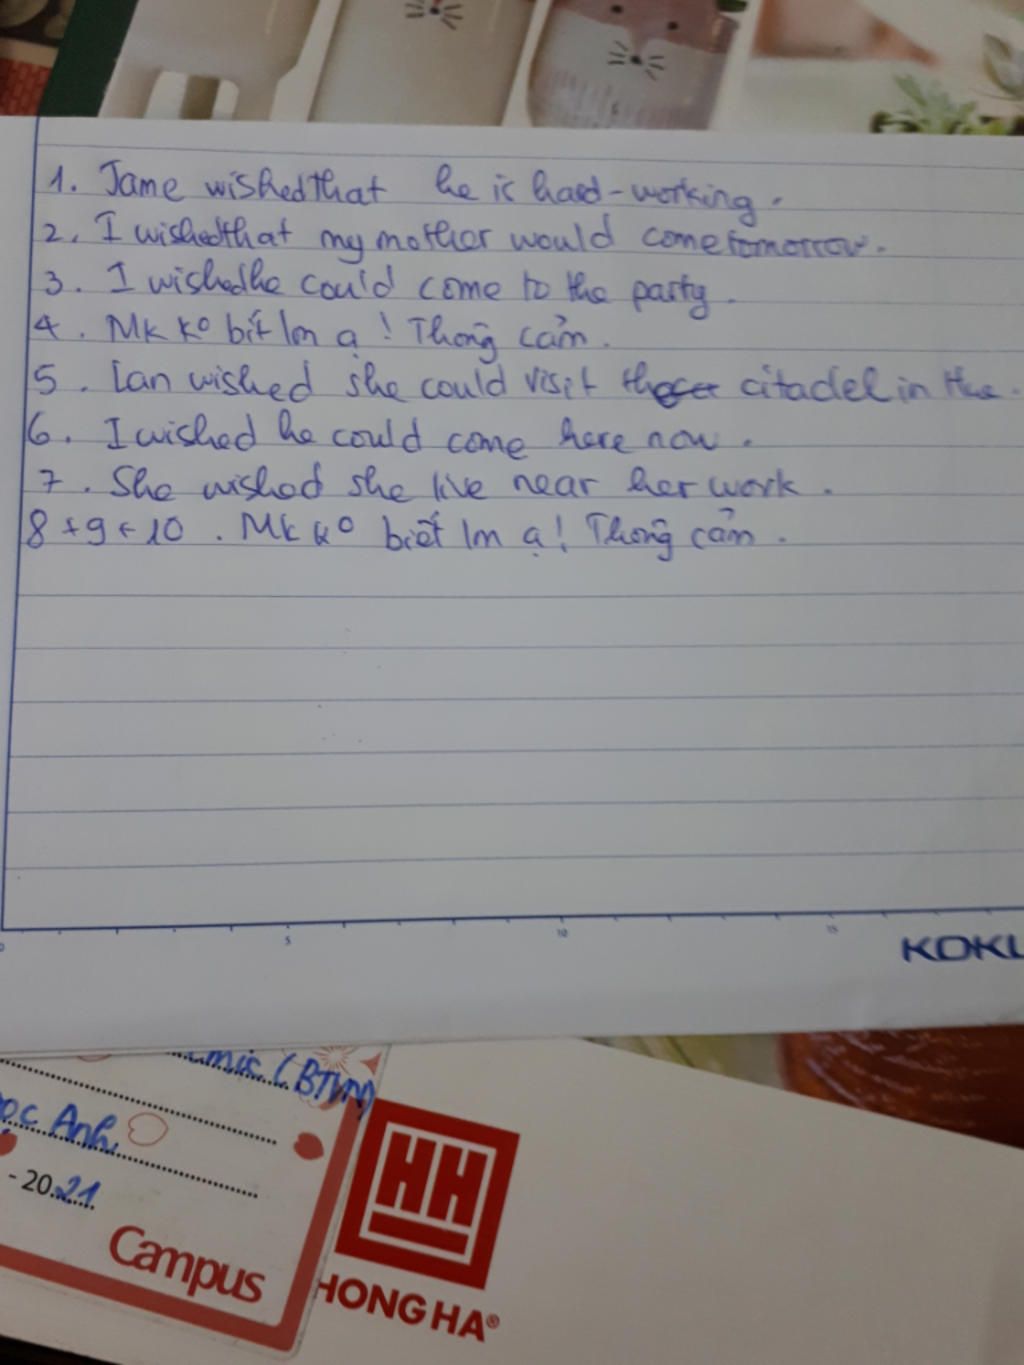 1. Jame wished that he is hard-working.
2. I wished that my mother would come tomorrow.
3. I wished he could come to the party.
4. Mk ko bít lm ạ! Thông cảm.
5. Lan wished she could visit the citadel in the.
6. I wished he could come here now.
7. She wished she live near her work.
8 + 9 + 10. Mk ko biết lm ạ! Thông cảm.
5 10 15
KOKU
(BTVN)
ọc Anh
- 2021
Campus
HH
HONG HA®